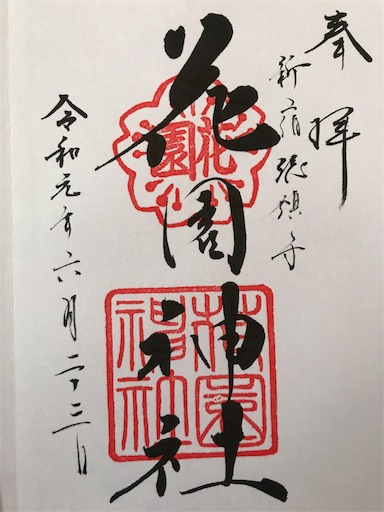 奉拝
新宿総鎮守
花園神社
令和元年六月二十三日
花園
花園神社